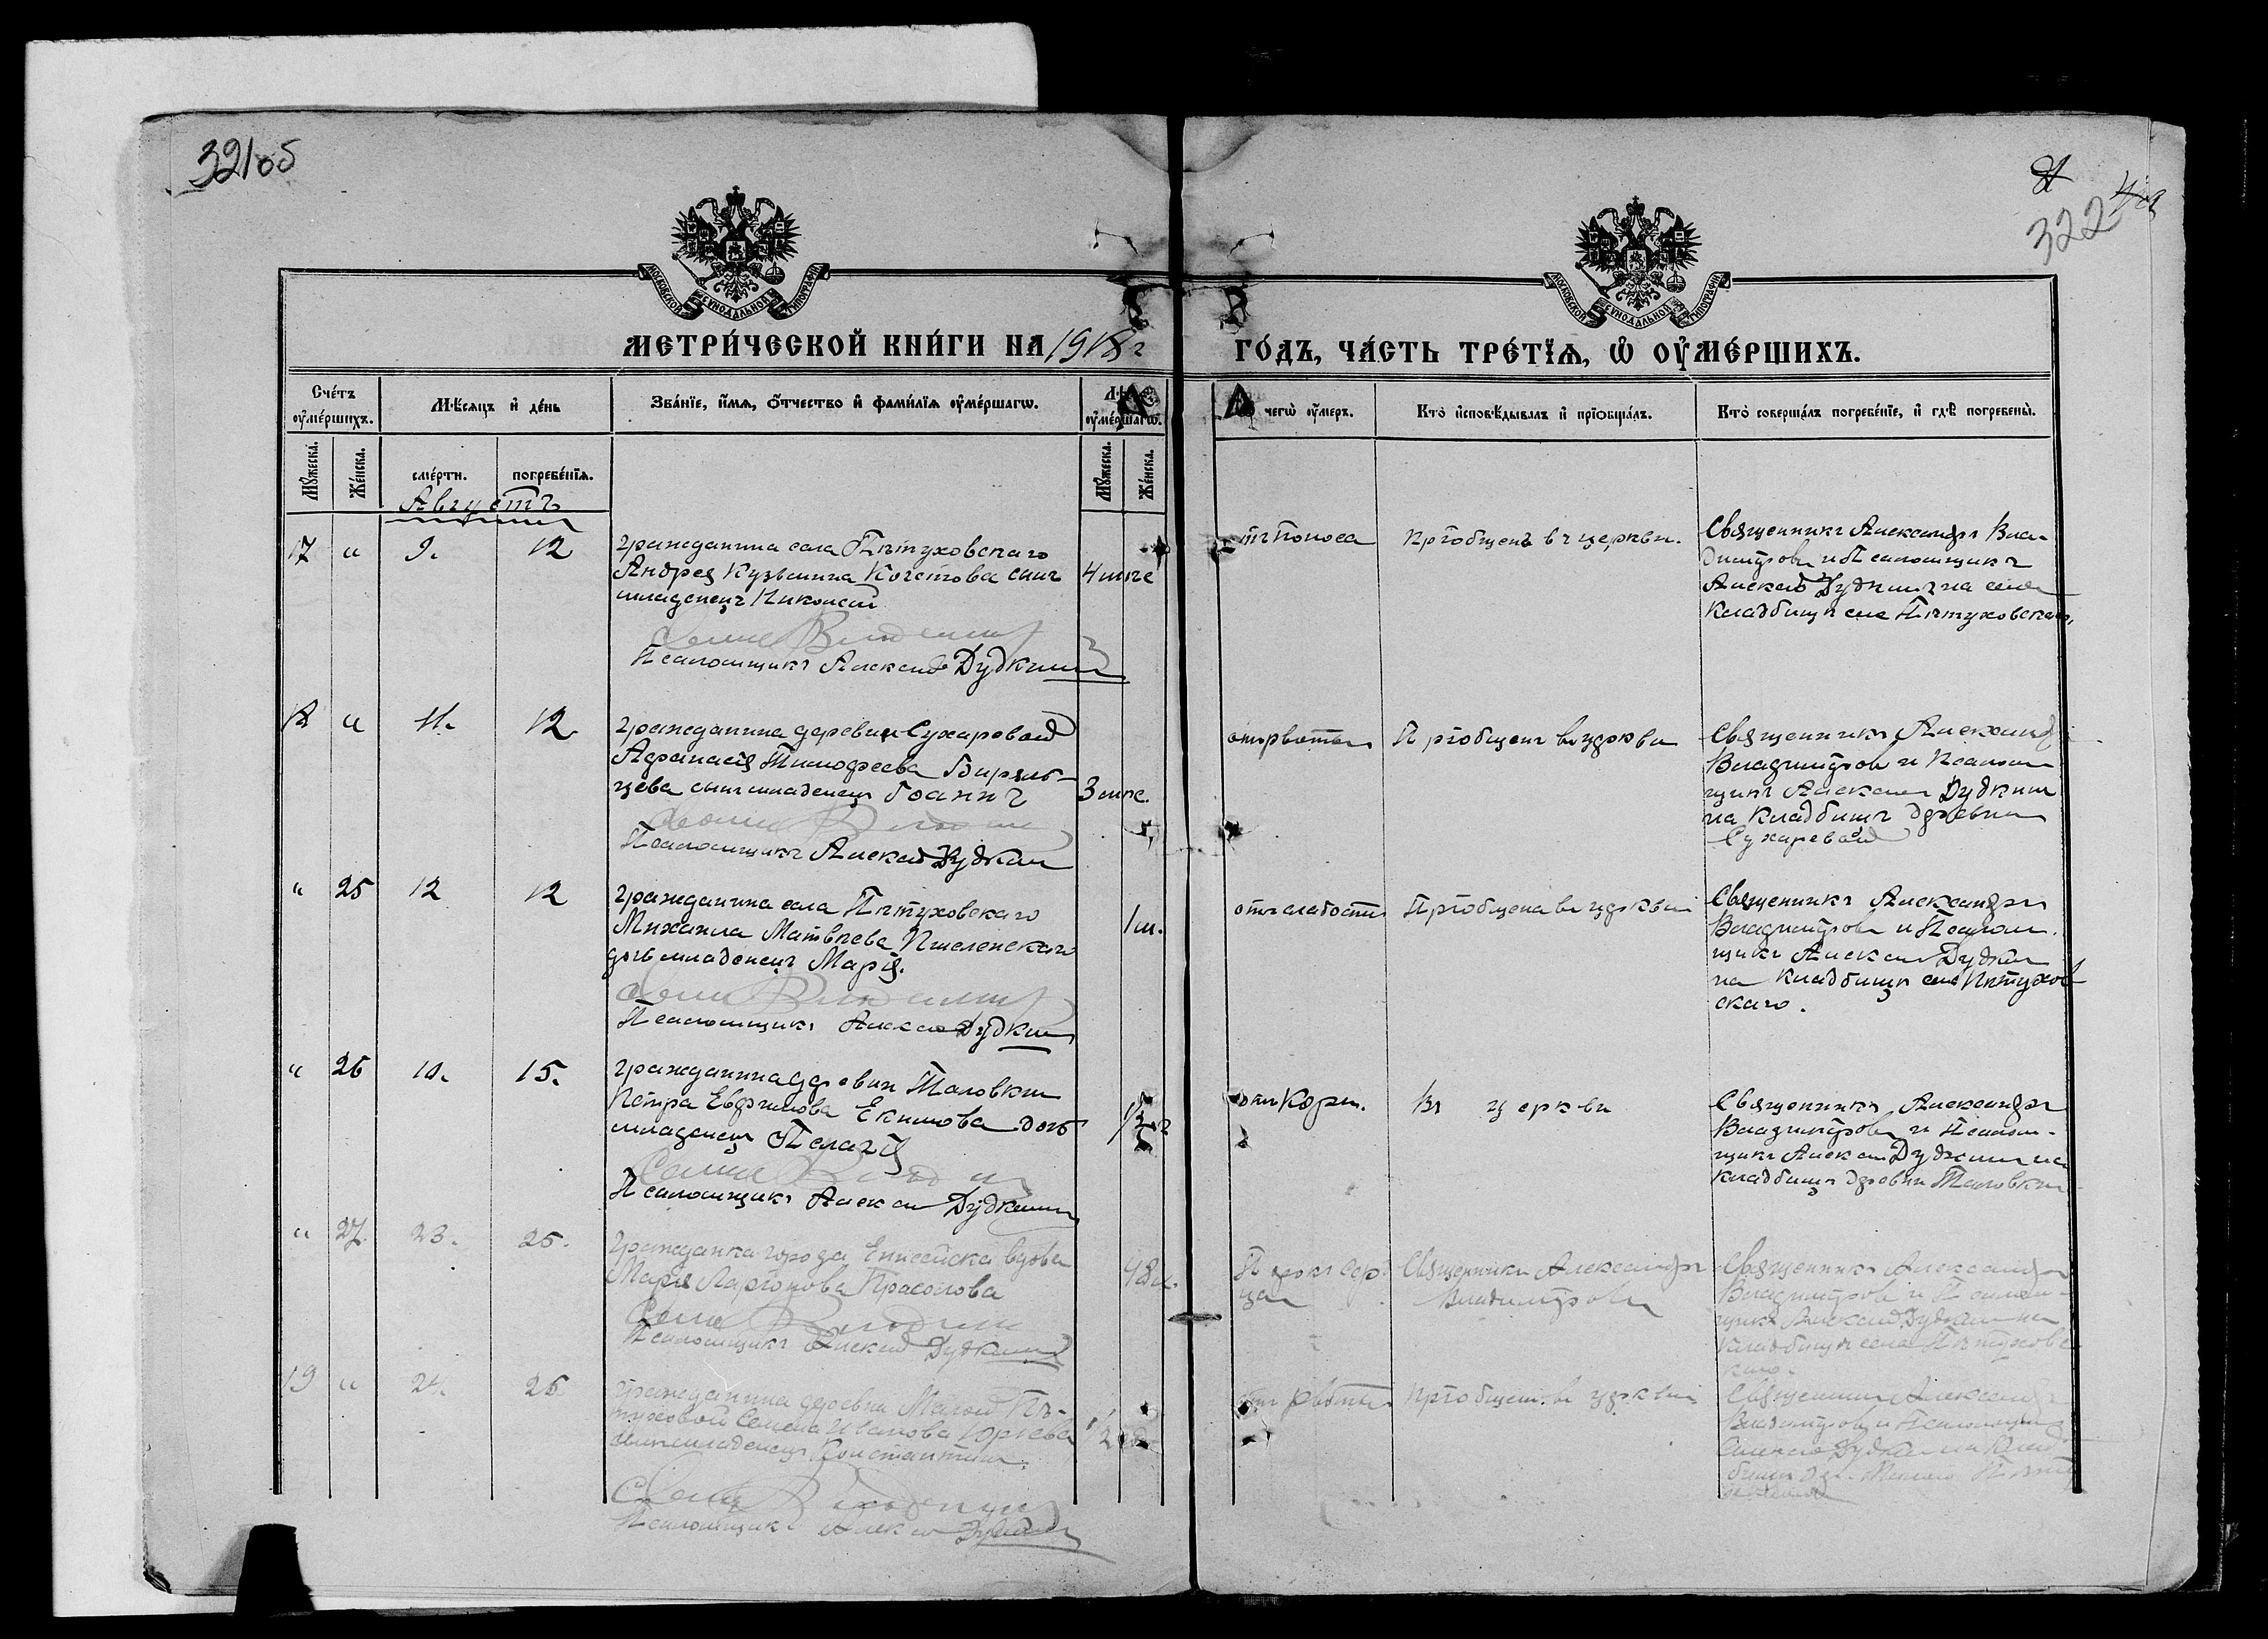 321об
322
МОСКОВСКОЙ СѴНОДАЛЬНОЙ ТИПОГРАФІИ
МОСКОВСКОЙ СѴНОДАЛЬНОЙ ТИПОГРАФІИ
МЕТРИ́ЧЕСКОЙ КНИ́ГИ НА 1918 г
ГО́ДЪ, ЧА́СТЬ ТРЕ́ТІѦ, Ѡ҆ ОУ҆МЕ́РШИХЪ.
Сче́тъ оу҆ме́ршихъ.
Мѣ́сяцъ и҆ де́нь
Зва́нїе, и҆́мя, ѻ҆́тчество и҆ фами́лїя оу҆ме́ршагѡ.
оу҆ме́ршагѡ.
чегѡ̀ оу҆́меръ.
Кто̀ и҆сповѣ́дывалъ и҆ прїѡбща́лъ.
Кто̀ соверша́лъ погребе́нїе, и҆ гдѣ̀ погребены̀.
Мꙋ́жеска.
Же́нска.
сме́рти.
погребе́нїѧ.
Мꙋ́жеска.
Же́нска.
Августъ
17 " 9. 12
гражданина села Пѣтуховскаго
Андрея Кузьмина Кочетова сынъ
младенецъ Николай
4 мѣс
Псаломщикъ Алексѣй Дудкинъ
отъ поноса
Пріобщенъ въ церкви.
Священникъ Александръ Вла-
димировъ и Псаломщикъ
Алексѣй Дудкинъ на
кладбищѣ села Пѣтуховскаго.
18 " 11. 12
гражданина деревни Сухаревой
Афанасія Тимофеева
цева сынъ младенецъ Іоаннъ
3 мѣс.
Псаломщикъ Алексѣй Дудкин
отъ рвоты
Пріобщенъ въ церкви
Священникъ Александръ
Владимировъ и Псалом-
щикъ Алексѣй Дудкин
на кладбищѣ деревни
Сухаревой
" 25 12 12
гражданина села Пѣтуховскаго
Михаила Матвѣева
дочь младенецъ Марія.
1 м.
Псаломщикъ Алексѣй Дудкин
отъ слабости
Пріобщена въ церкви
Священникъ Александръ
Владимировъ и Псалом-
щикъ Алексѣй Дудкин
на кладбищѣ села Пѣтухов-
скаго.
" 26 10. 15.
гражданина деревни Таловки
Петра Евфимова Екимова дочь
младенецъ Пелагія
Псаломщикъ Алексѣй Дудкинъ
отъ Кори.
Въ церкви
Священникъ Александръ
Владимировъ и Псалом-
щикъ Алексѣй Дудкинъ на
кладбищѣ деревни Таловки
" 27. 23. 25.
гражданка города Енисейска вдова
Марія Ларіонова
48 л.
Псаломщикъ Алексѣй Дудкинъ
Порокъ серд-
ца
Священникъ Александръ
Владимировъ
Священникъ Александръ
Владимировъ и Псалом-
щикъ Алексѣй Дудкин на
кладбищѣ села Пѣтуховс-
каго.
19 " 24. 25
гражданина деревни Малой Пѣ-
туховой Семена Иванова Юрьева
сынъ младенецъ Константинъ.
Псаломщикъ Алексѣй
отъ рвоты
Пріобщенъ въ церкви
Священникъ Александръ
Владимировъ и Псаломщикъ
Алексѣй Дудкин на клад-
бищѣ дер. Малой Пѣту-
ховой